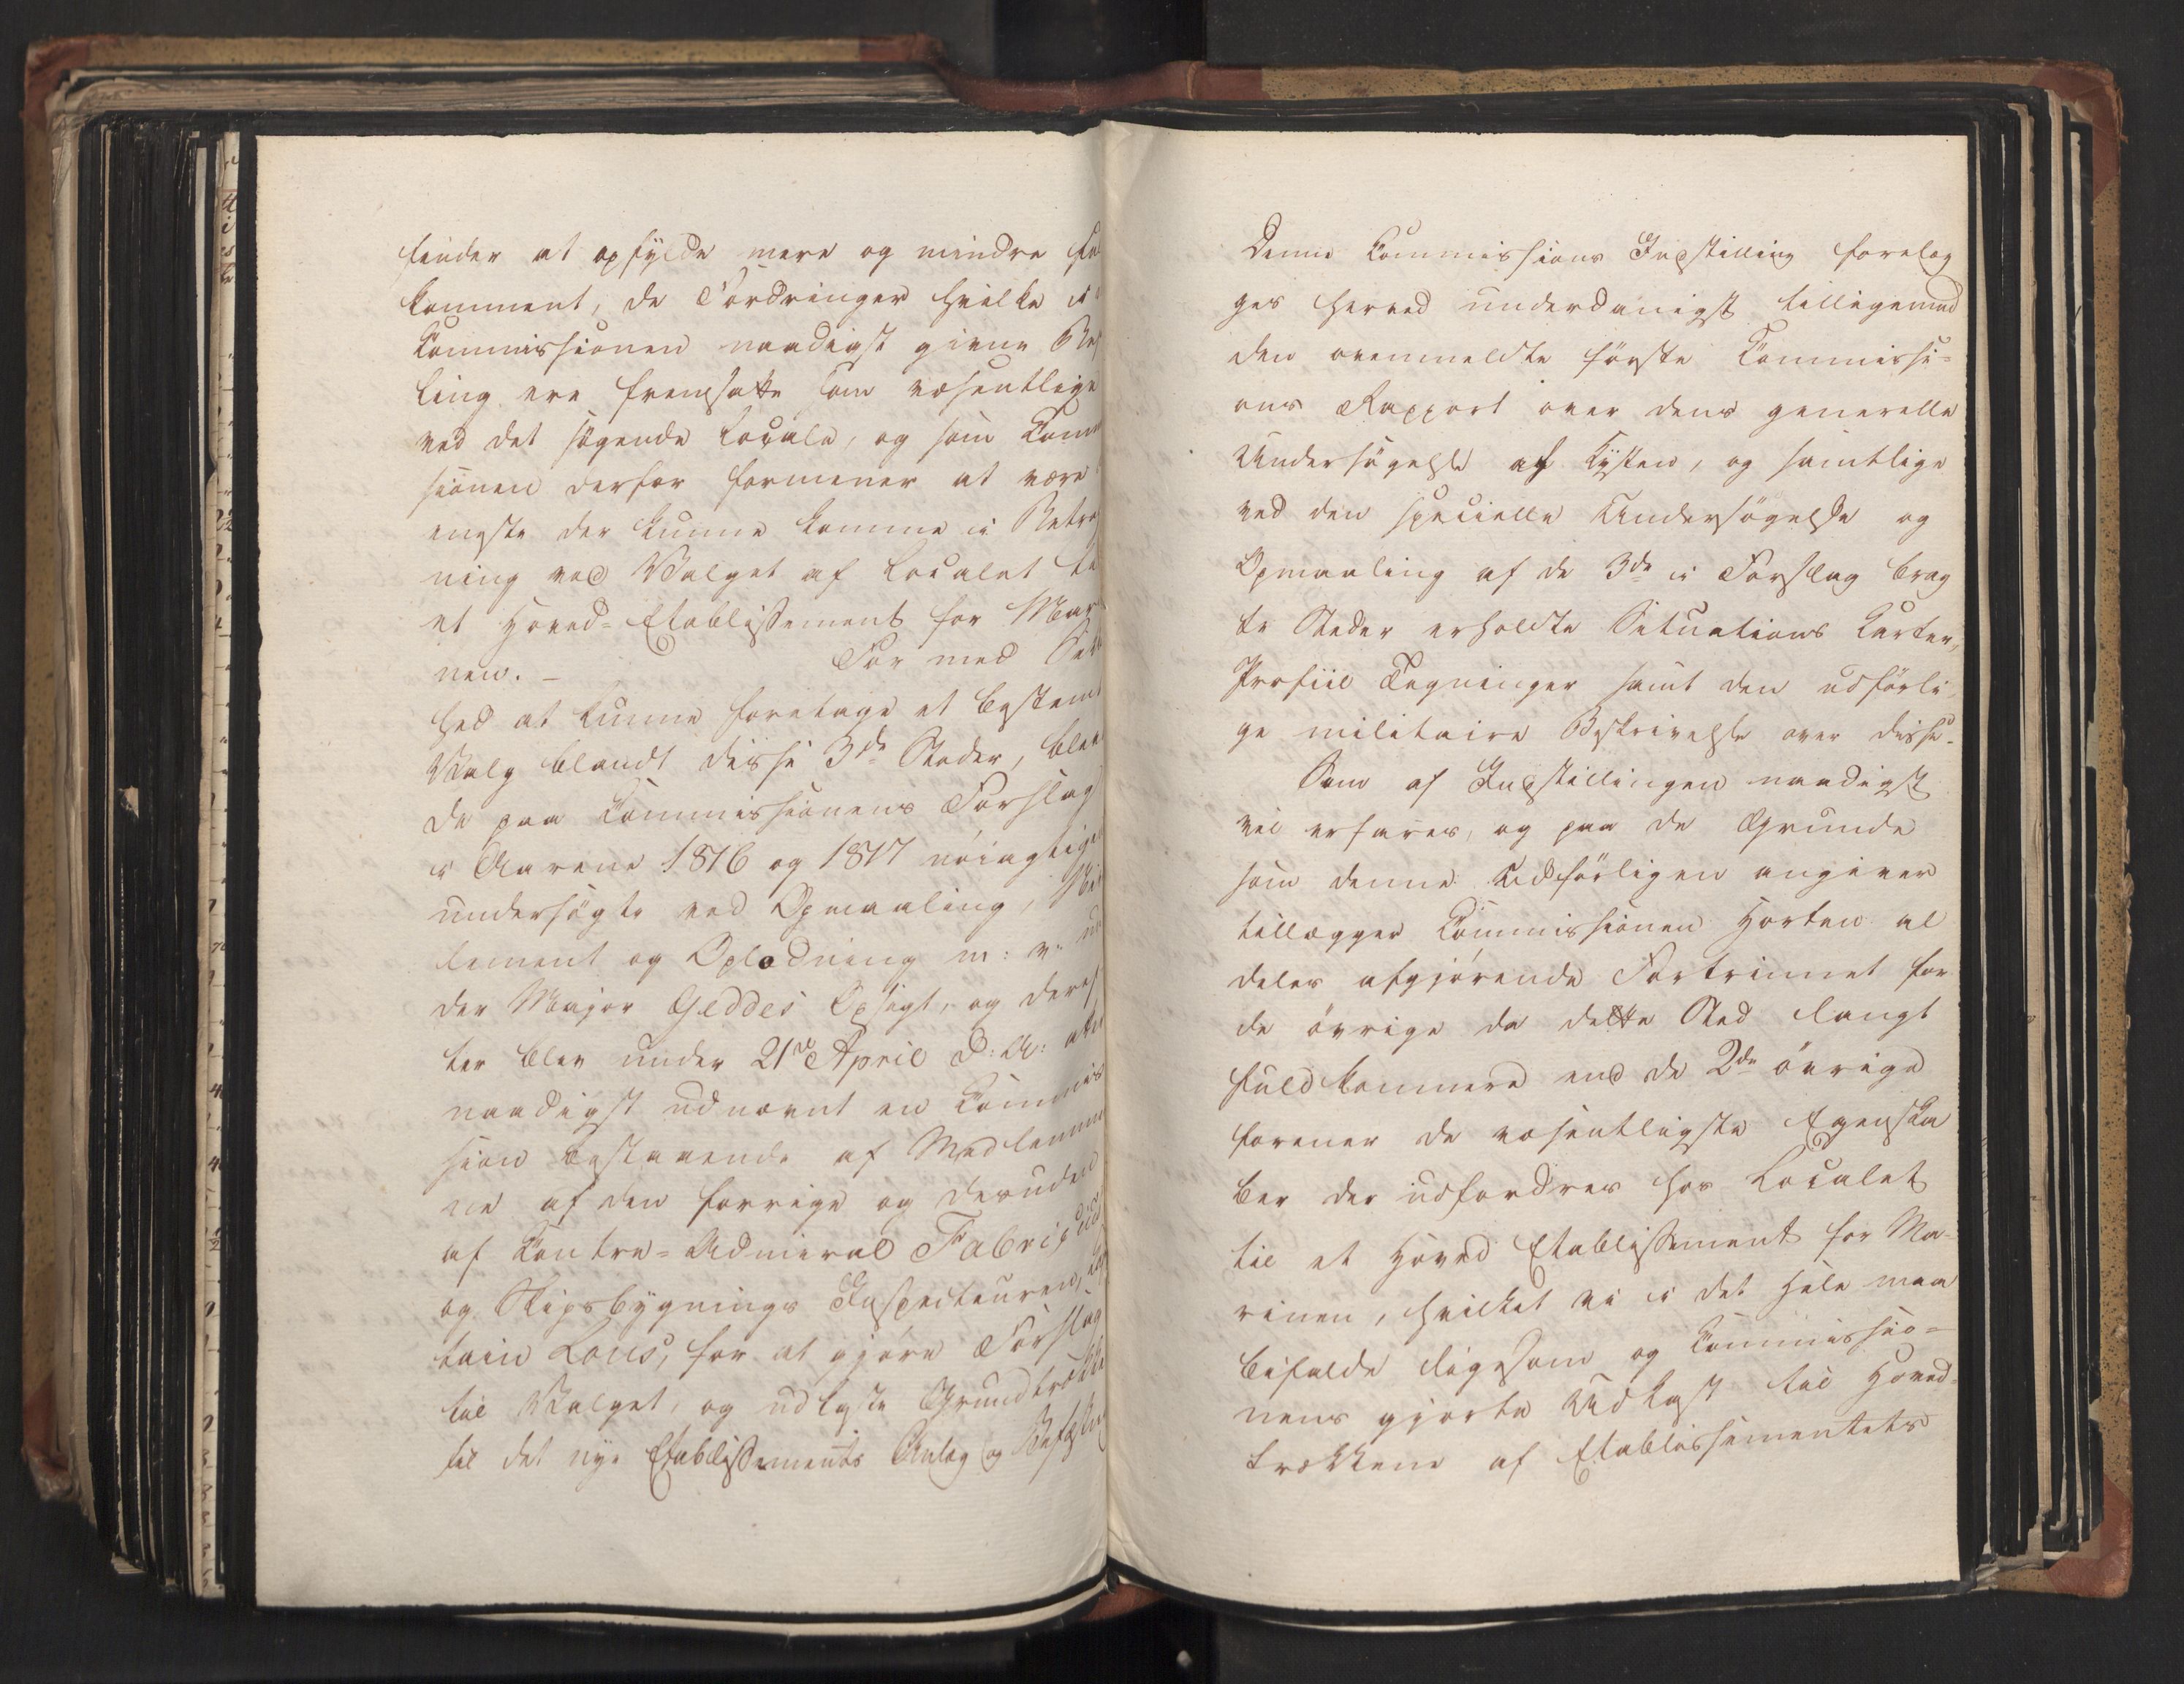 finder at opfylde mere og mindre ful
komment, de Fordringer hvilke i
Commissionen naadigst givne Be
ling ere fremsatte som væsentlige
ved det søgende Locale, og som Comm
sionen derfor formener at være
eneste der kunne komme i Betrag
ning ved Valget af Localet ti
et Hoved-Etablissement for Mar
nen. — For med Sik
hed at kunne foretage et bestemt
Valg blandt disse 3de Steder, blev
de paa Commissionens Forslag
i Aarene 1816 og 1817 nöiagtige
undersögte ved Opmaaling, Niv
lement og Oplodning m: v: un
der Major Geddes Opsigt, og deref
ter blev under 21de April d: A: atter
naadigst udnævnt en Commis
sion bestaaende af Medlemme
ne af den forrige og desuden
af Contra-Admiral Fabricius
og Skipsbygnings Inspecteuren, Cap
tain Lous, for at gjøre Forslag
til Valget, og udkaste Grundtrække
til det nye Etablissements Anlæg og Befæstn
Denne Commissions Indstilling forelæg
ges herved underdanigst tilligemed
den ovenmeldte første Commissi-
ons Rapport over dens generelle
Undersögelse af Kysten, og samtlige
ved den specielle Undersögelse og
Opmaaling af de 3de i Forslag brag
te Steder erholdte Situations Karter,
Profiil Tegninger samt den udförli-
ge militaire Beskrivelse over disse.
Som af Indstillingen naadigst
vil erfares, og paa de Grunde
som denne udförligen angiver
tillægger Commissionen Horten al
deles afgjörende Fortrinnet for
de övrige da dette Sted langt
fuldkomnere end de 2de övrige
forener de væsentligste Egenska
ber der udfordres hos Localet
til et Hoved Etablissement for Ma-
rinen, hvilket vi i det Hele maa
bifalde ligesom og Commissio-
nens gjorte Udkast til Hoved-
trækkene af Etablissementets